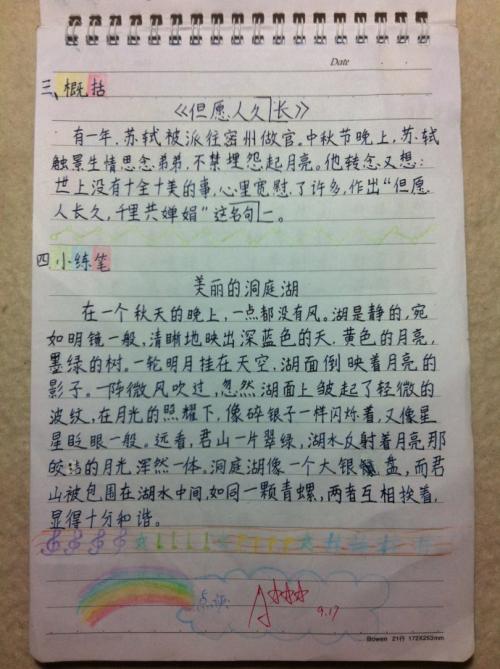 Date
三、概括
《但愿人久长》
有一年,苏轼被派往密州做官。中秋节晚上,苏轼
触景生情思念弟弟,不禁埋怨起月亮。他转念又想:
世上没有十全十美的事,心里宽慰了许多,作出“但愿
人长久,千里共婵娟”这名句。
四、小练笔
美丽的洞庭湖
在一个秋天的晚上,一点都没有风。湖是静的,宛
如明镜一般,清晰地映出深蓝色的天,黄色的月亮,
墨绿的树。一轮明月挂在天空,湖面倒映着月亮的
影子。一阵微风吹过,忽然湖面上皱起了轻微的
波纹,在月光的照耀下,像碎银子一样闪烁着,又像星
星眨眼一般。远看,君山一片翠绿,湖水反射着月亮那
皎洁的月光,浑然一体。洞庭湖像一个大银盘,而君
山被包围在湖水中间,如同一颗青螺,两者互相挨着,
显得十分和谐。
点评
9.17
Bowen 21行 172X253mm